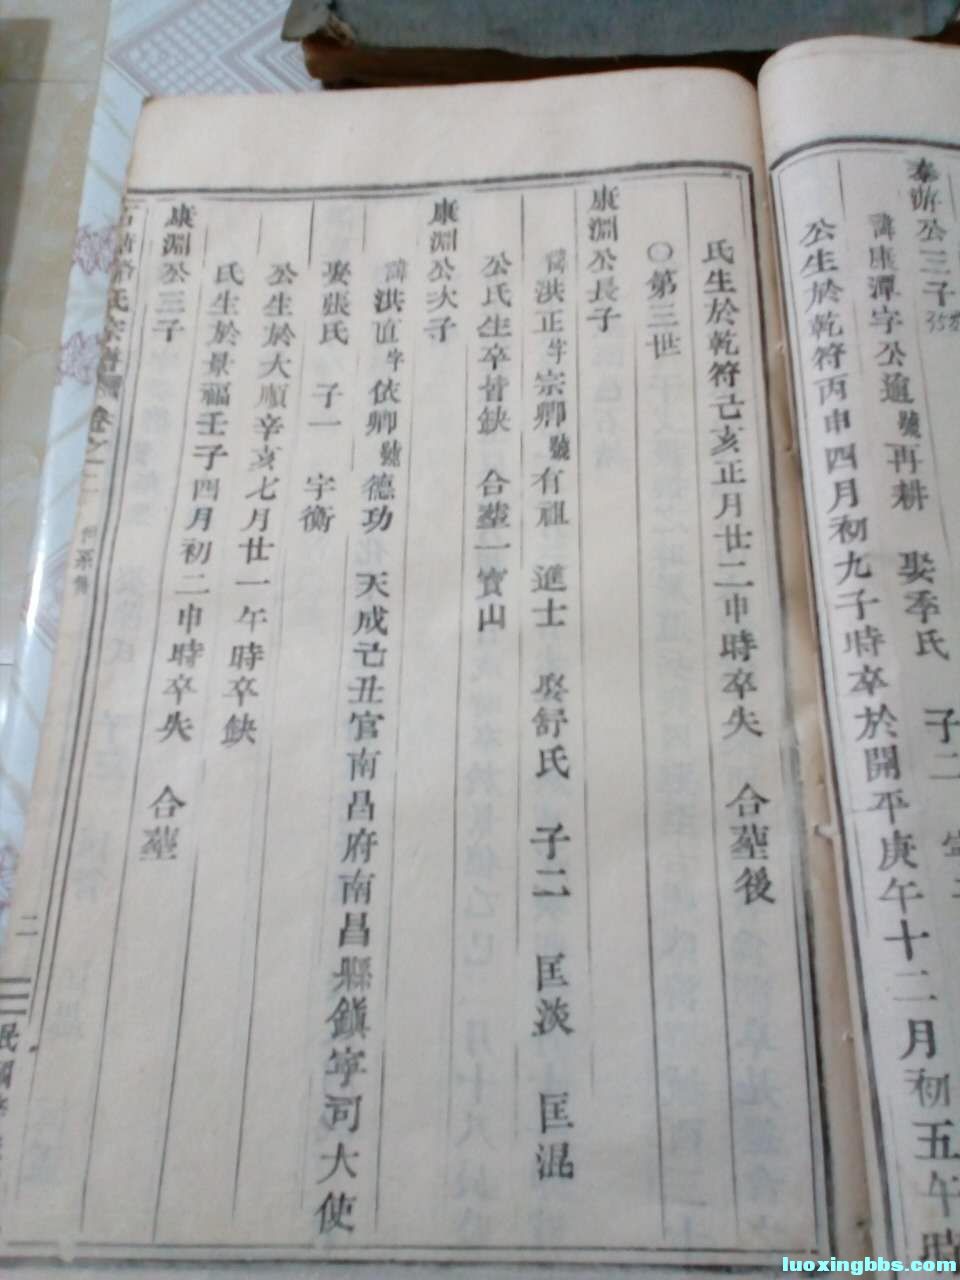 泰游公三子
諱康潭字公遒號再耕 娶季氏 子二
公生於乾符丙申四月初九子時卒於開平庚午十二月初五午時
氏生於乾符己亥正月廿二申時卒失 合塟後
〇第三世
康淵公長子
諱洪正字宗卿號有祖 進士 娶舒氏 子二 匡淡 匡混
公氏生卒皆缺 合塟一寳山
康淵公次子
諱洪直字依卿號德功 天成己丑官南昌府南昌縣鎭寜司大使
娶張氏 子一 宇衡
公生於大順辛亥七月廿一午時卒缺
氏生於景福壬子四月初二申時卒失 合塟
康淵公三子
氏宗譜 卷之二
二
民國
luoxingbbs.com